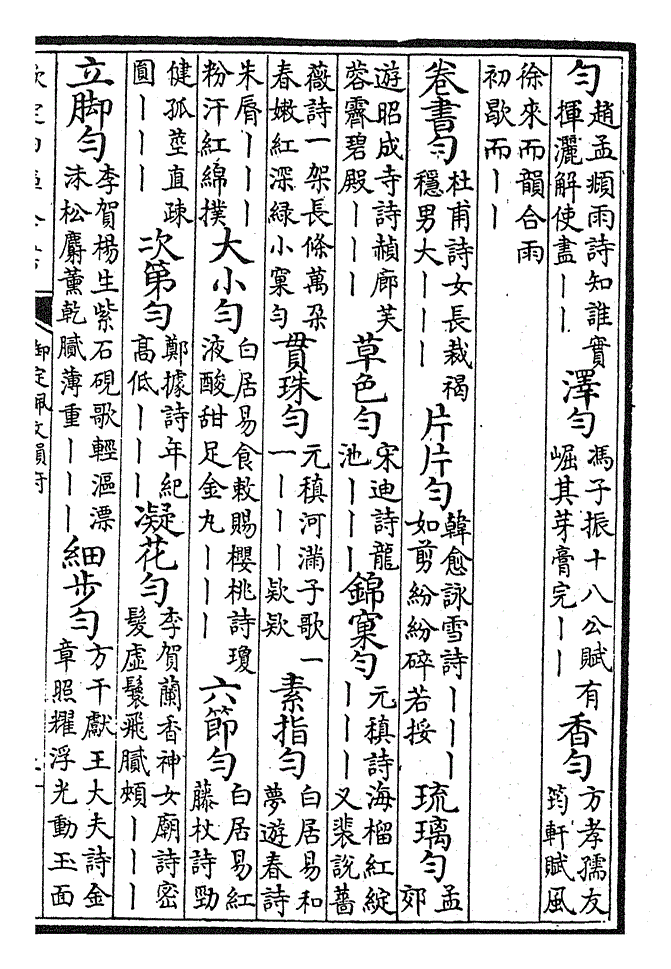 勻趙孟頫雨詩知誰實揮灑解使盡丨丨澤勻馮子振十八公賦有崛其芽膏完丨丨香勻方孝孺友筠軒賦風
徐來而韻合雨初歇而丨丨
卷書勻杜甫詩女長裁褐穩男大丨丨丨片片勻韓愈詠雪詩丨丨丨如剪紛紛碎若挼琉璃勻孟郊
遊昭成寺詩赬廊芙蓉霽碧殿丨丨丨草色勻宋迪詩龍池丨丨丨錦窠勻元稹詩海榴紅綻丨丨丨又裴說薔
薇詩一架長條萬朵春嫩紅深綠小窠勻貫珠勻元稹河滿子歌一一丨丨丨歘歘素指勻白居易和夢遊春詩
朱脣丨丨丨粉汗紅綿撲大小勻白居易食敕賜櫻桃詩瓊液酸甜足金丸丨丨丨六節勻白居易紅藤杖詩勁
健孤莖直疎圓丨丨丨次第勻鄭據詩年紀高低丨丨丨凝花勻李賀蘭香神女廟詩密髮虛鬟飛膩頰丨丨丨
立脚勻李賀楊生紫石硯歌輕漚漂沫松麝薰乾膩薄重丨丨丨細步勻方干獻王大夫詩金章照耀浮光動玉面
御定佩文韻府